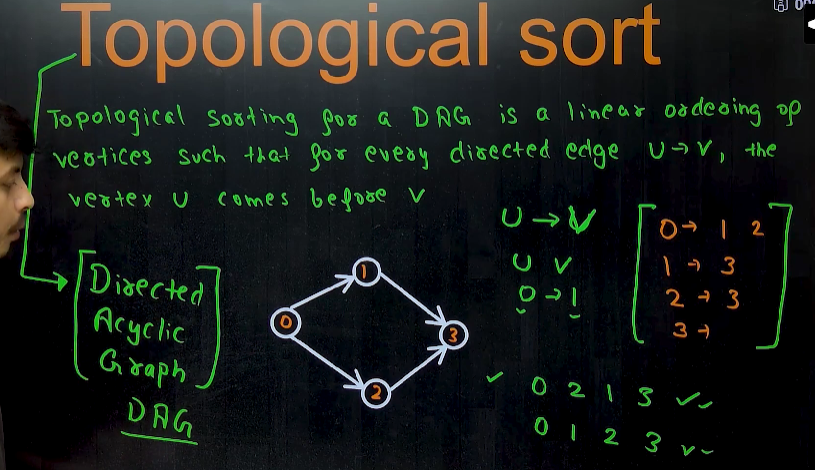 Topological sort
Topological sorting for a DAG is a linear ordering of
vertices such that for every directed edge U → V, the
vertex U comes before V
Directed
Acyclic
Graph
DAG
0
1
2
3
U → V
U V
0 → 1
0 → 1 2
1 → 3
2 → 3
3 →
✓ 0 2 1 3 ✓✓
0 1 2 3 ✓✓